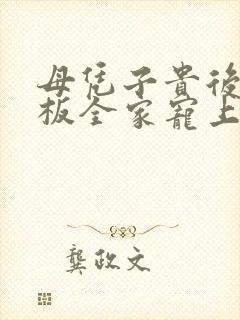 母凭子貴後
板全家寵上
龔政文